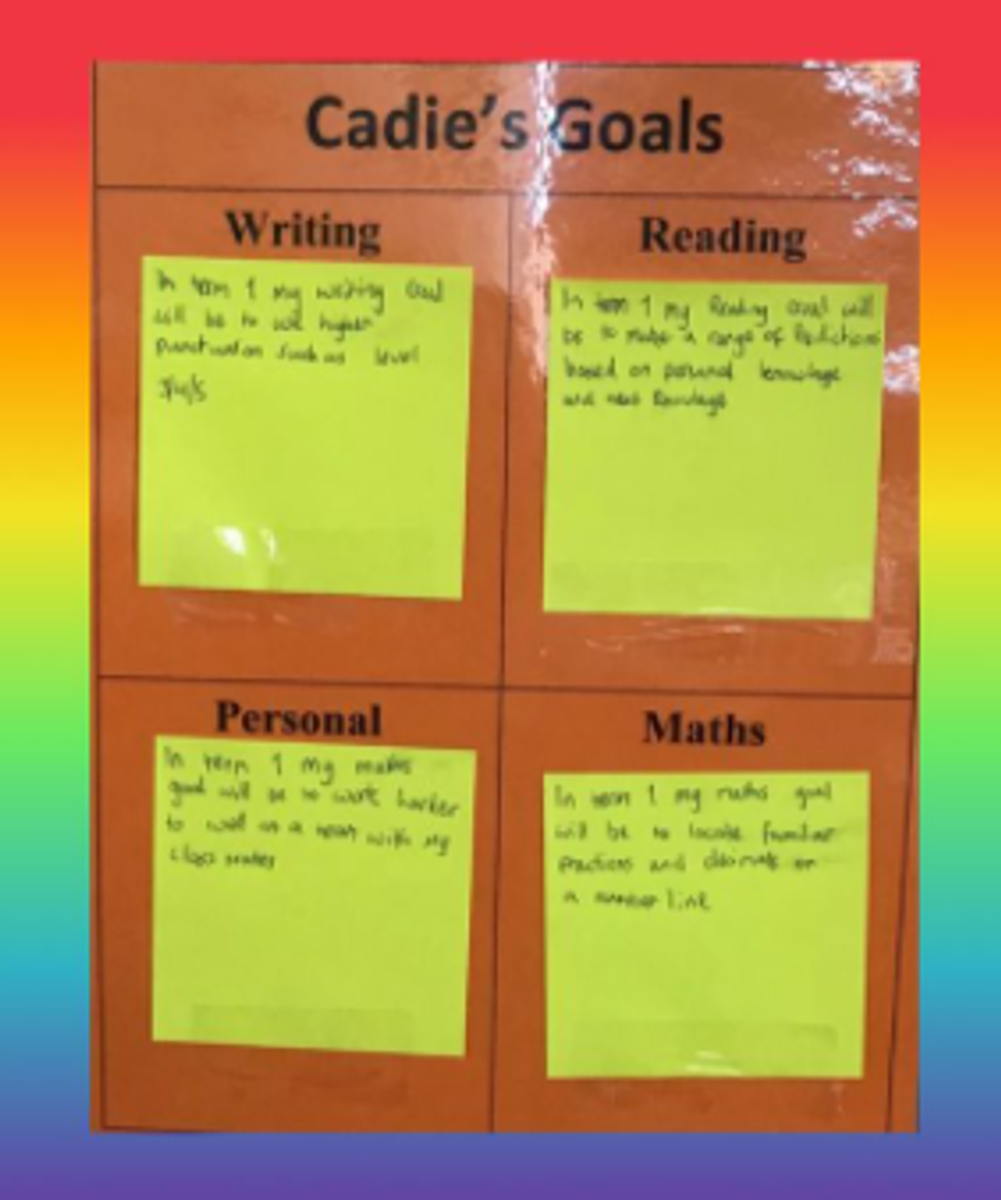 Cadie's Goals
Writing
In term 1 my writing Goal
will be to use higher
punctuation such as level
Reading
In term 1 my Reading Goal will
be to make a range of Predictions
based on personal knowledge
and
Personal
In term 1 my maths
goal will be to work harder
to well as a team with my
class mates
Maths
In term 1 my maths goal
will be to locate familiar
fractions and decimals on
a number line